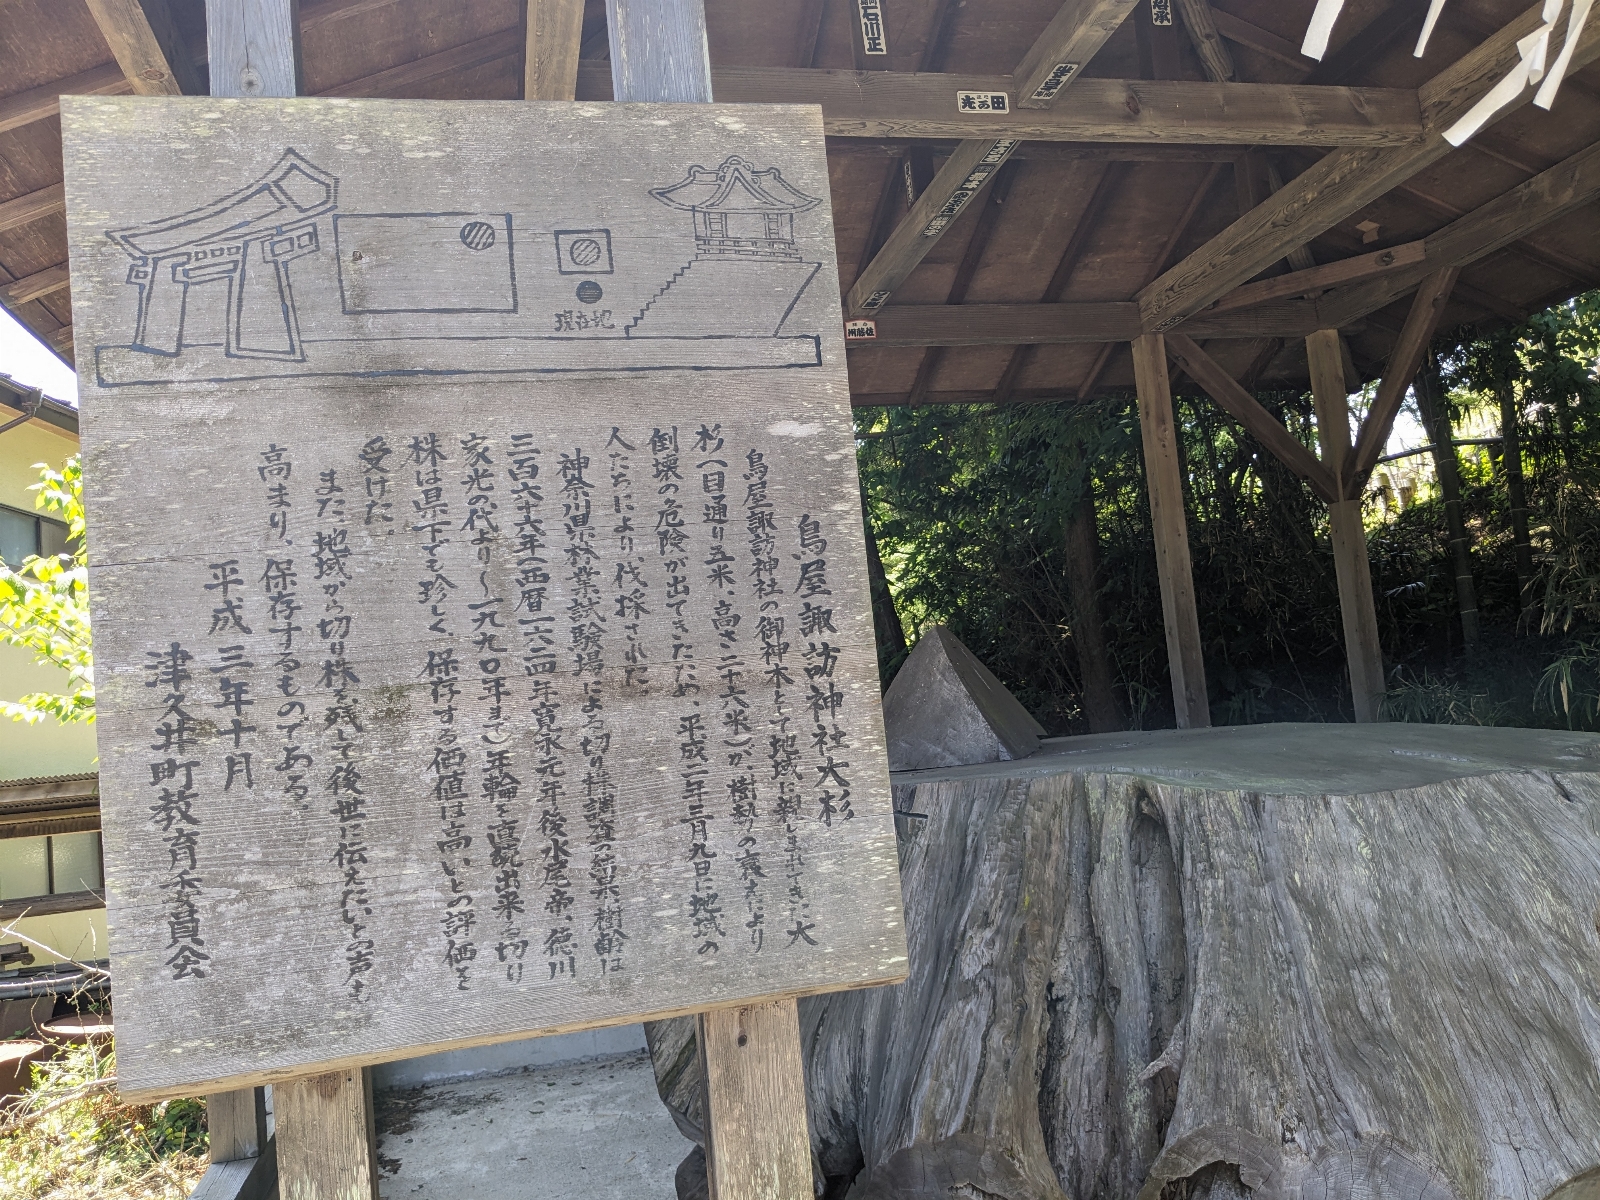 鳥屋諏訪神社大杉
鳥屋諏訪神社の御神木として地域に親しまれてきた大
杉(目通り五米、高さ二十六米)が、樹勢の衰えより
倒壊の危険が出てきたため、平成二年三月九日に地域の
人たちにより、伐採された。
神奈川県林業試験場による切り株調査の結果、樹齢は
三百六十六年(西暦一六二四年寛永元年後水尾帝、徳川
家光の代より〜一九九〇年まで)年輪を直読出来る切り
株は県下でも珍しく、保存する価値は高いとの評価を
受けた。
また、地域から切り株を残して後世に伝えたいとの声も
高まり、保存するものである。
平成三年十月
津久井町教育委員会
現在地